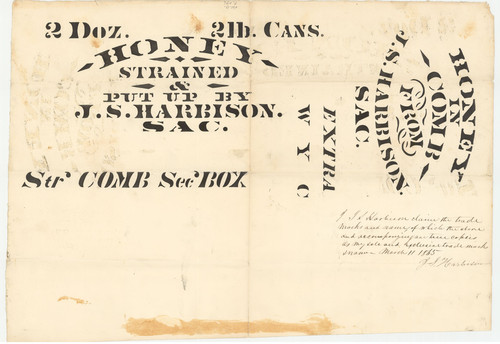 2 Doz. 2lb. CANS.
HONEY
STRAINED
&
PUT UP BY
J. S. HARBISON.
SAC.
Str COMB Sec BOX
EXTRA
W Y C
HONEY
IN
COMB
FROM
J. S. HARBISON.
SAC.
I J S Harbison claim the trade
marks and names of which the above
and accompanying are true copies
as my sole and exclusive trade marks
March 11 1865
J S Harbison